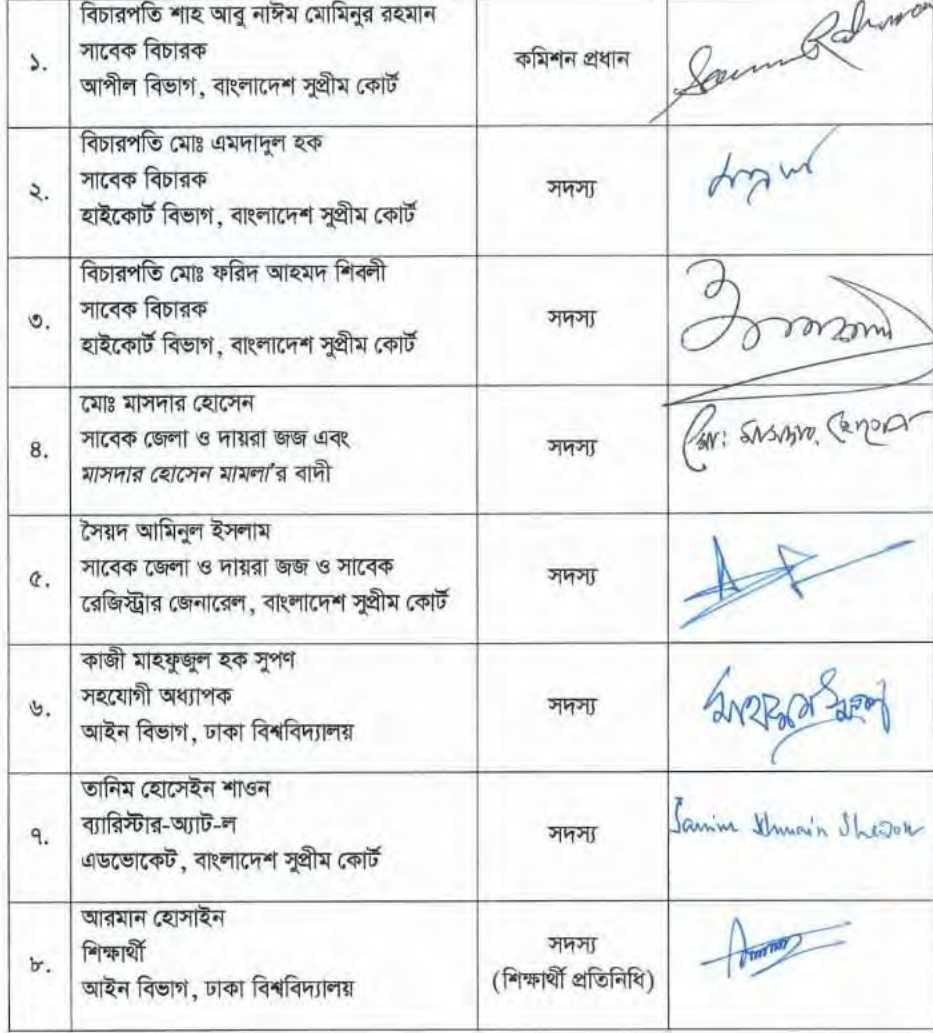 বিচারপতি শাহ আবু নাঈম মোমিনুর রহমান
সাবেক বিচারক
আপীল বিভাগ, বাংলাদেশ সুপ্রীম কোর্ট
১.
কমিশন প্রধান
বিচারপতি মোঃ এমদাদুল হক
সাবেক বিচারক
হাইকোর্ট বিভাগ, বাংলাদেশ সুপ্রীম কোর্ট
২.
সদস্য
বিচারপতি মোঃ ফরিদ আহমদ শিবলী
সাবেক বিচারক
হাইকোর্ট বিভাগ, বাংলাদেশ সুপ্রীম কোর্ট
৩.
সদস্য
মোঃ মাসদার হোসেন
সাবেক জেলা ও দায়রা জজ এবং
মাসদার হোসেন মামলা'র বাদী
৪.
সদস্য
মোঃ মাসদার হোসেন
সৈয়দ আমিনুল ইসলাম
সাবেক জেলা ও দায়রা জজ ও সাবেক
রেজিস্ট্রার জেনারেল, বাংলাদেশ সুপ্রীম কোর্ট
৫.
সদস্য
কাজী মাহফুজুল হক সুপণ
সহযোগী অধ্যাপক
আইন বিভাগ, ঢাকা বিশ্ববিদ্যালয়
৬.
সদস্য
তানিম হোসেইন শাওন
ব্যারিস্টার-অ্যাট-ল
এডভোকেট, বাংলাদেশ সুপ্রীম কোর্ট
৭.
সদস্য
আরমান হোসাইন
শিক্ষার্থী
আইন বিভাগ, ঢাকা বিশ্ববিদ্যালয়
৮.
সদস্য
(শিক্ষার্থী প্রতিনিধি)